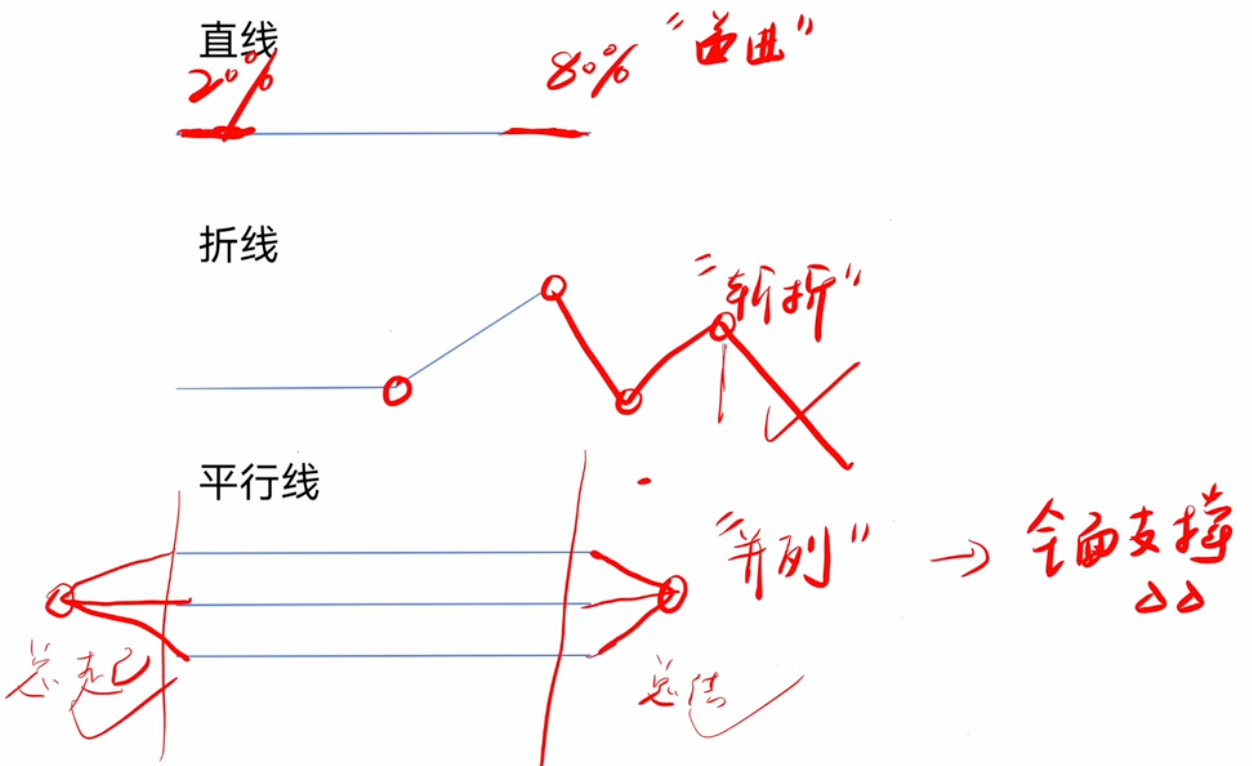 直线
20%
80%
"递进"
折线
"转折"
平行线
"并列" → 全面支撑
总起
总结